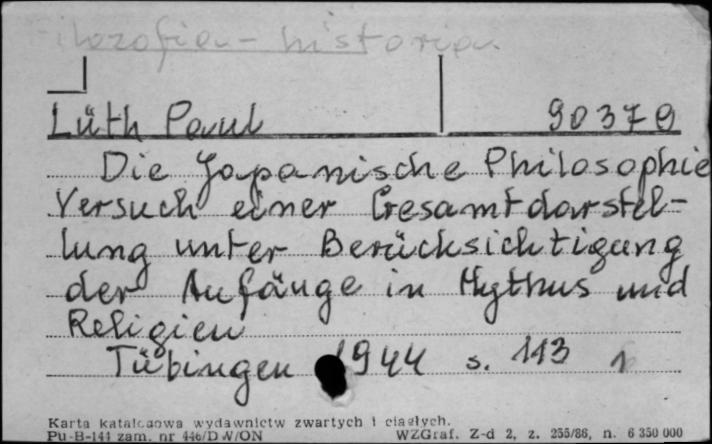 Filozofia - historia.
Lüth Paul 90370
Die Japanische Philosophie
Versuch einer Gesamtdarstel-
lung unter Berücksichtigung
der Anfänge in Mythus und
Religien
Tübingen 1944 s. 113
Karta katalogowa wydawnictw zwartych i ciągłych.
Pu-B-144 zam. nr 446/DW/ON WZGraf. Z-d 2, z. 255/86, n. 6 350 000